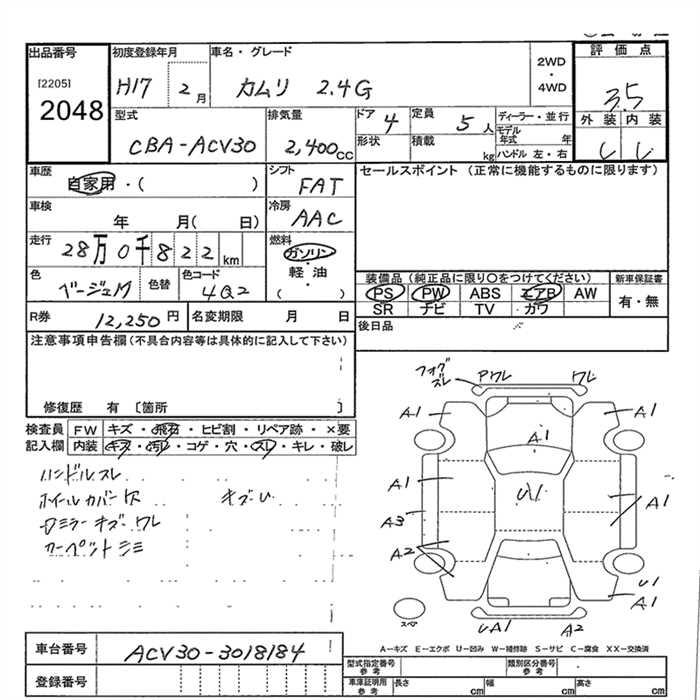 出品番号
[2205]
2048
初度登録年月
H17 2月
車名・グレード
カムリ 2.4G
2WD
・
4WD
評価点
3.5
型式
CBA-ACV30
排気量
2,400cc
ドア
4
形状
定員
5人
積載
kg
ディーラー・並行
モデル年式 年
ハンドル 左・右
外装 内装
車歴
自家用・( )
シフト
FAT
セールスポイント (正常に機能するものに限ります)
車検
年 月( 日)
冷房
AAC
走行
28万0千822km
燃料
ガソリン
軽油
( )
色
ベージュM
色替
色コード
4Q2
装備品 (純正品に限り○をつけてください)
PS PW ABS エアB AW
SR ナビ TV カワ
新車保証書
有・無
R券 12,250円
名変期限 月 日
後日品
注意事項申告欄(不具合内容等は具体的に記入して下さい)
修復歴 有 〔箇所 〕
検査員記入欄
FW キズ・飛石・ヒビ割・リペア跡・×要
内装 キズ・汚レ・コゲ・穴・スレ・キレ・破レ
ハンドルスレ
ホイルカバー欠 キズU
ロミラーキズ-ワレ
カーペットシミ
フォグスレ
Pワレ
ワレ
A1
A1
A1
A1
U1
A1
A3
A2
U1
A1
スペ
UA1
A2
A-キズ E-エクボ U-凹み W-補修跡 S-サビ C-腐食 XX-交換済
車台番号
ACV30-3018184
登録番号
型式指定番号 参考
類別区分番号 参考
車庫証明用 参考
長さ cm
幅 cm
高さ cm